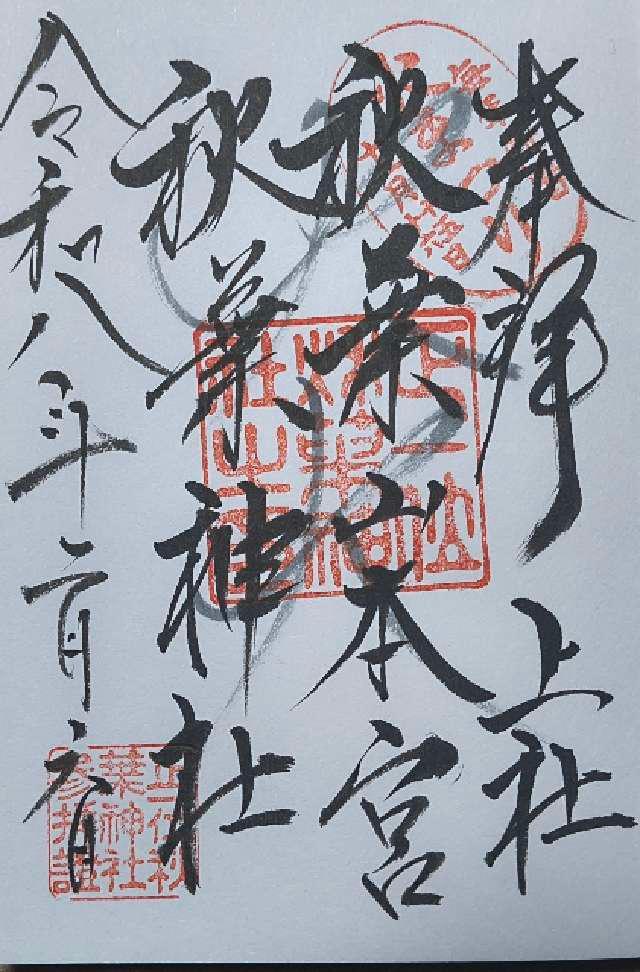 奉拝 上社
秋葉山本宮
秋葉神社
令和八年二月六日
正一位
秋葉神
社之璽
正一位秋
葉神社
参拝證